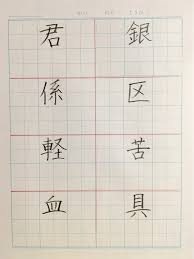 銀区苦具
君係軽血